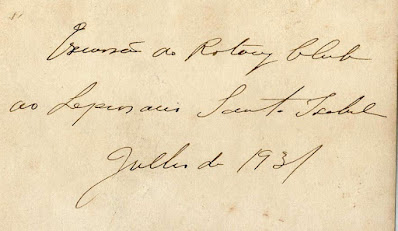 Excursão do Rotary Club
ao Leprosario Santa Isabel
Julho de 1931